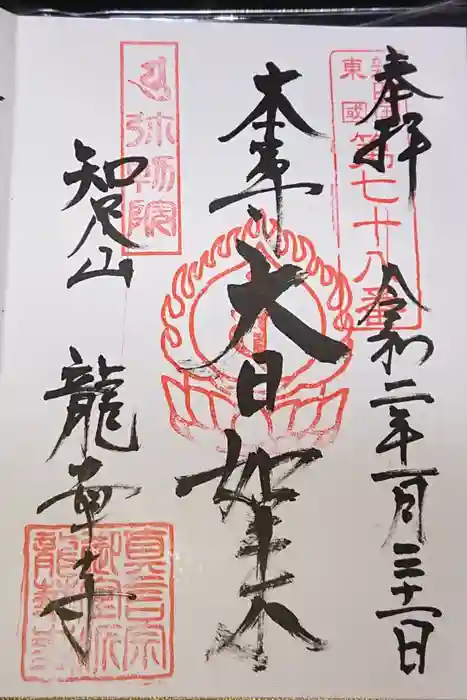 奉拝 令和二年一月三十一日
東國
第七十八番
本尊 大日如来
弥勒院
智足山 龍華寺
真言宗
御室派
龍華寺